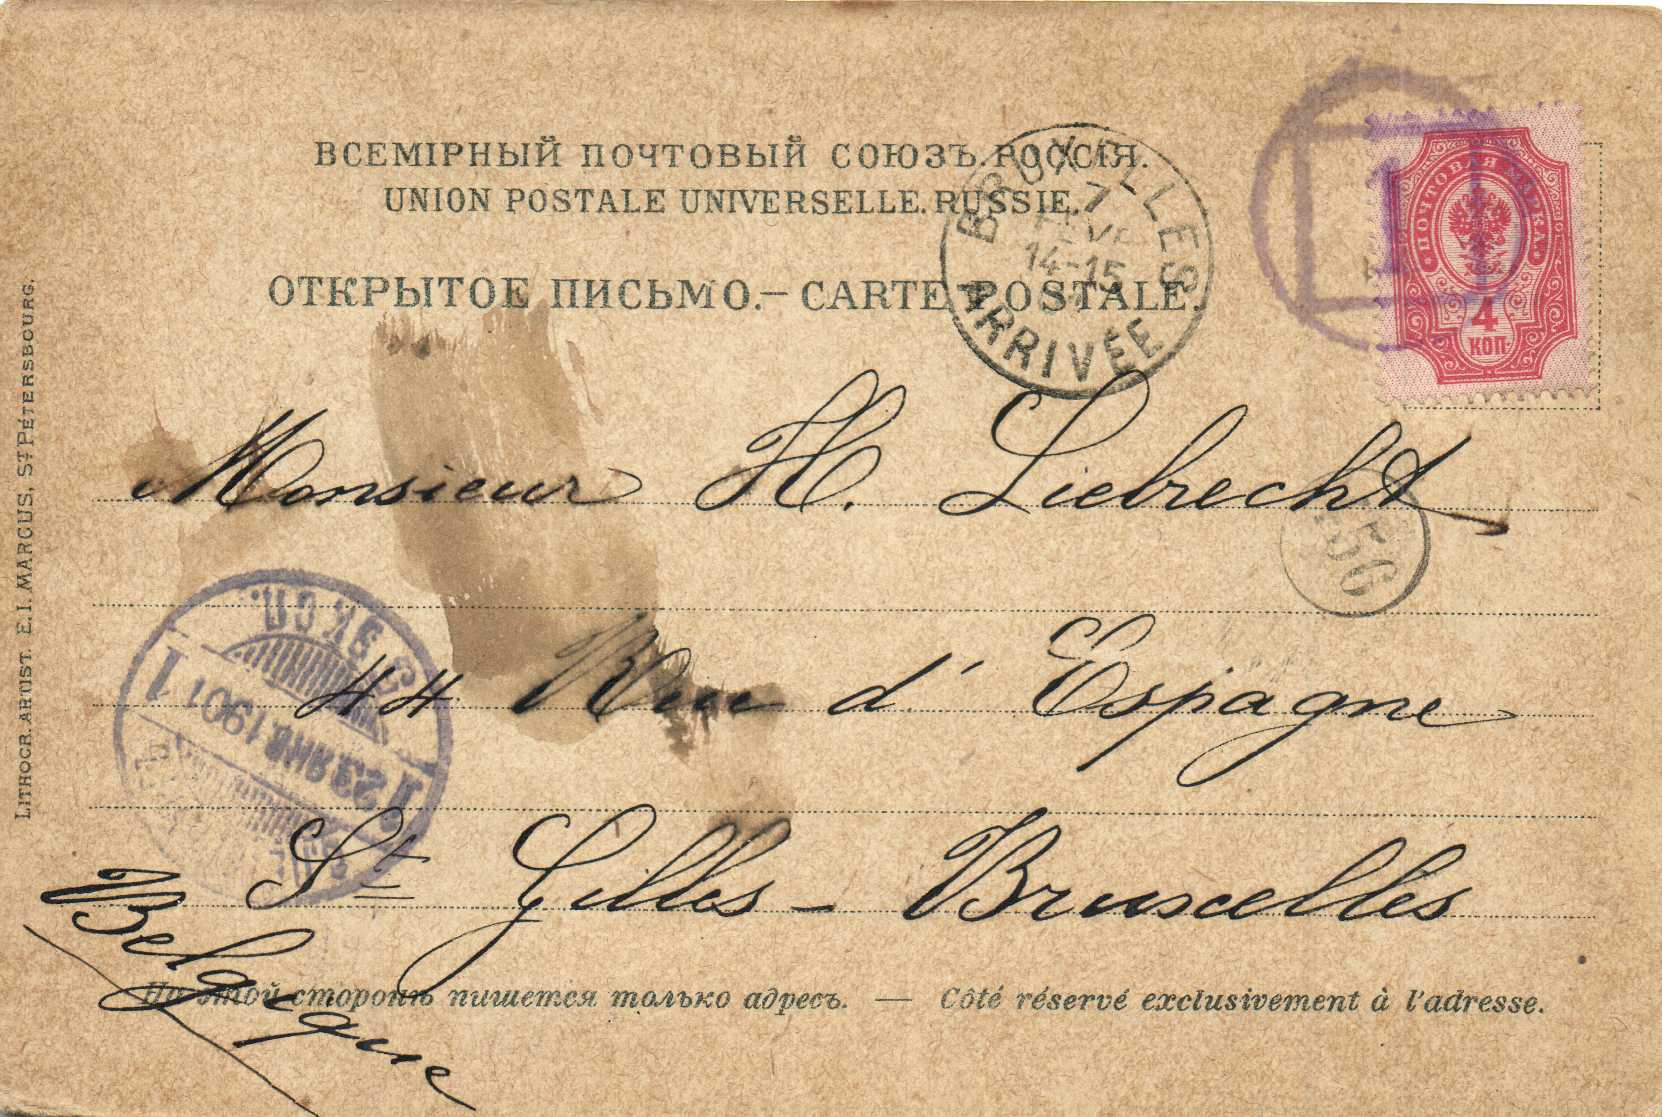 ВСЕМІРНЫЙ ПОЧТОВЫЙ СОЮЗЪ. РОССІЯ.
UNION POSTALE UNIVERSELLE. RUSSIE.
ОТКРЫТОЕ ПИСЬМО. — CARTE POSTALE.
BRUXELLES
7
14-15
ARRIVÉE
1
ПОЧТОВАЯ МАРКА
4
КОП.
Monsieur H. Liebrecht
56
44 Rue d'Espagne
1
23 ЯНВ. 1901
1
St Gilles - Bruxelles
Belgique
На этой сторонѣ пишется только адресъ. — Côté réservé exclusivement à l'adresse.
LITHOGR. ARTIST. E. I. MARCUS, ST PÉTERSBOURG.